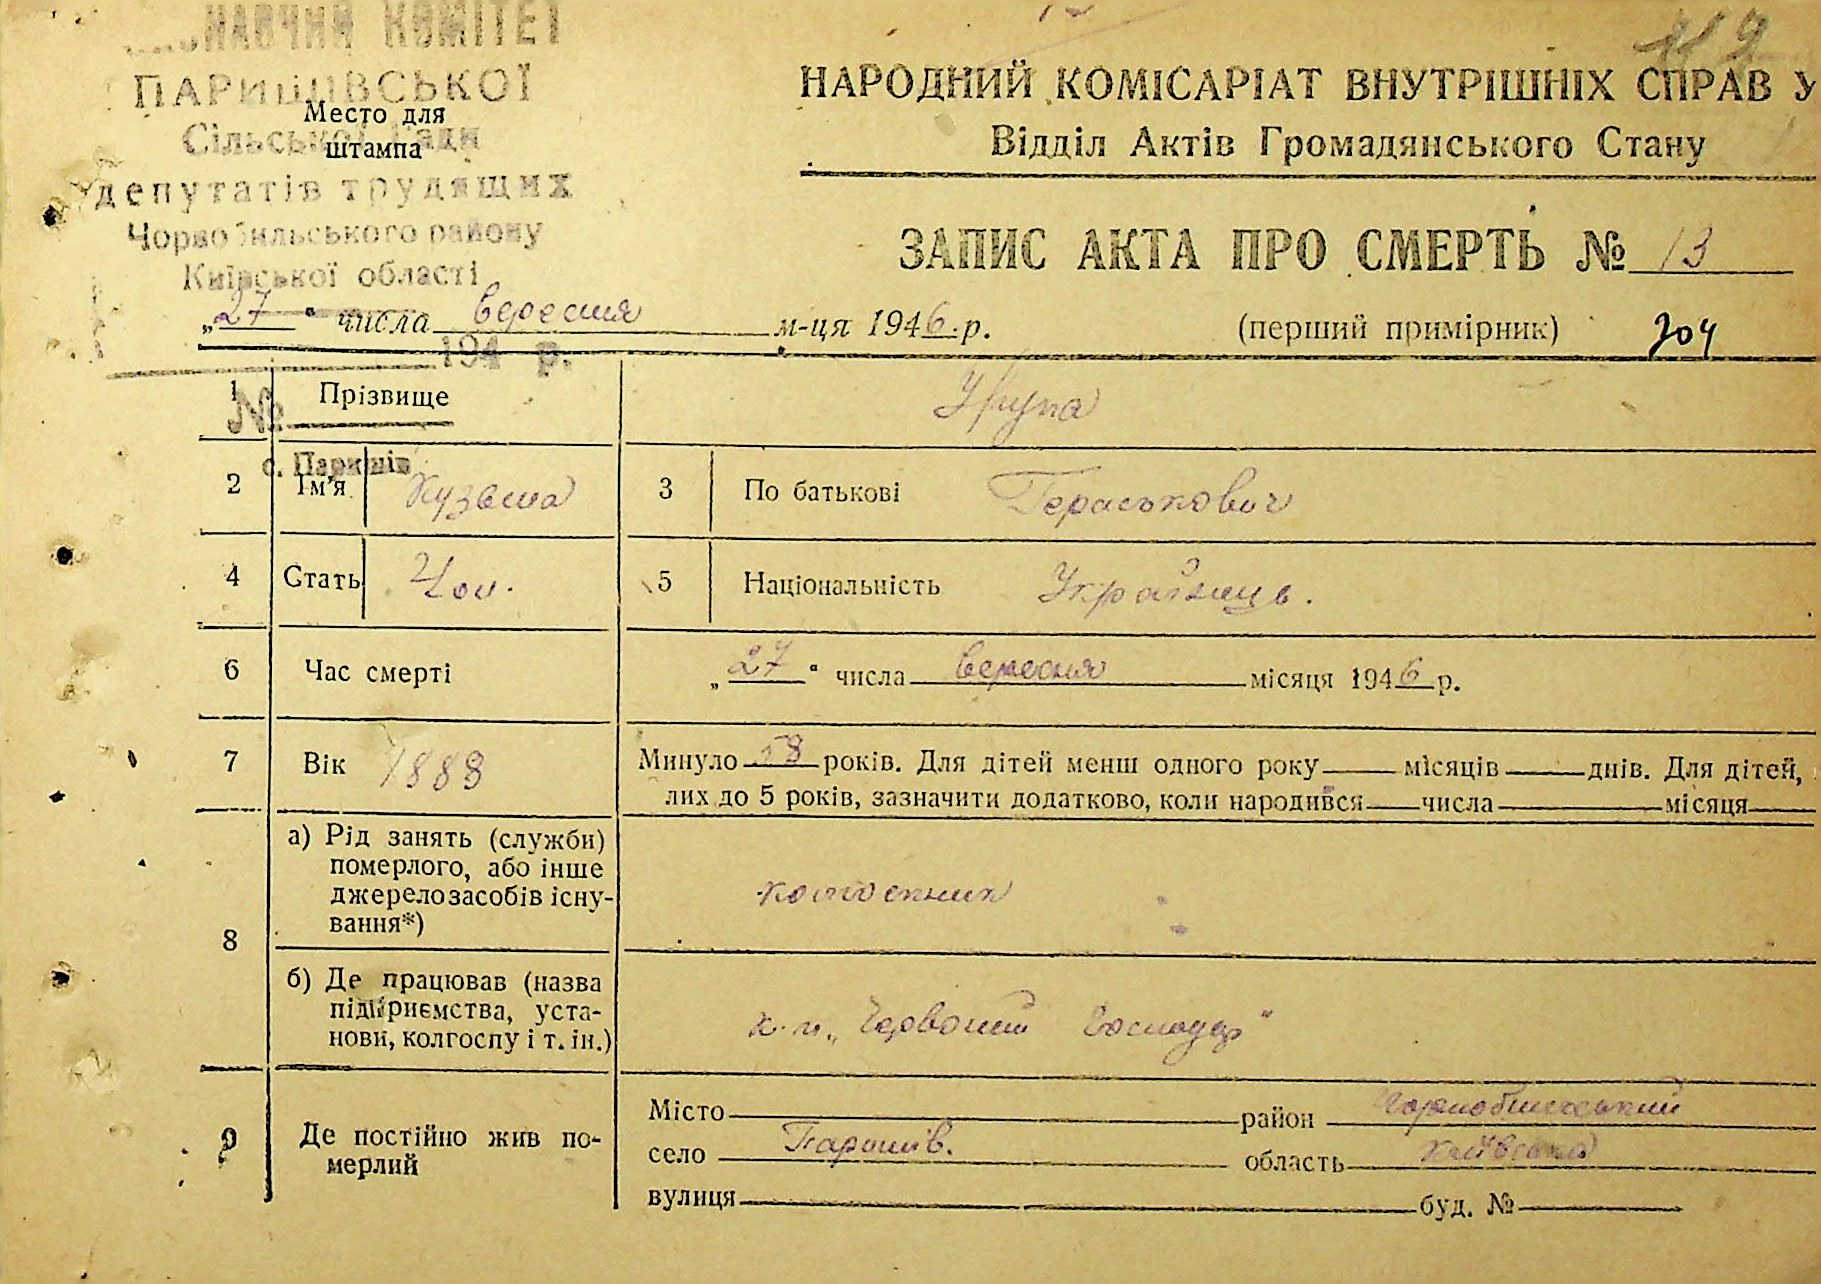 КОМІТЕТ
ПАРИШІВСЬКОЇ
Место для
Сільської Ради
штампа
депутатів трудящих
Чорнобильського району
Київської області
194 р.
№
с. Паришів
119
НАРОДНИЙ КОМІСАРІАТ ВНУТРІШНІХ СПРАВ У
Відділ Актів Громадянського Стану
ЗАПИС АКТА ПРО СМЕРТЬ № 13
„27“ числа вересня м-ця 1946.р.
(перший примірник) 304
1 Прізвище
2 Ім'я Кузьма 3 По батькові Гераськович
4 Стать Чол. 5 Національність Українець.
6 Час смерті „27“ числа вересня місяця 1946 р.
7 Вік 1888 Минуло 58 років. Для дітей менш одного року місяців днів. Для дітей,
лих до 5 років, зазначити додатково, коли народився числа місяця
8 а) Рід занять (служби)
померлого, або інше
джерело засобів існу-
вання*)
колгоспник
б) Де працював (назва
підприємства, уста-
нови, колгоспу і т. ін.)
„Червоний Господар“
9 Де постійно жив по-
мерлий
Місто район Чорнобильський
село Паришів. область Київська
вулиця буд. №